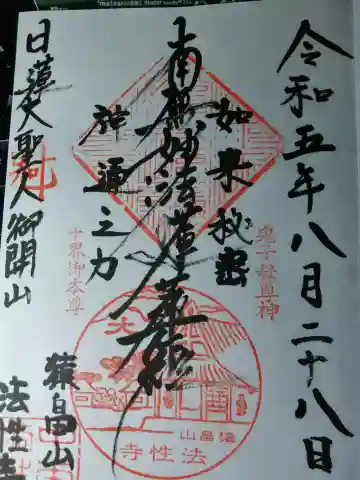 令和五年八月二十八日
如来秘密
鬼子母尊神
南無妙法蓮華経
神通之力
十界御本尊
日蓮大聖人御開山
猿畠山
法性寺
猿畠山
法性寺